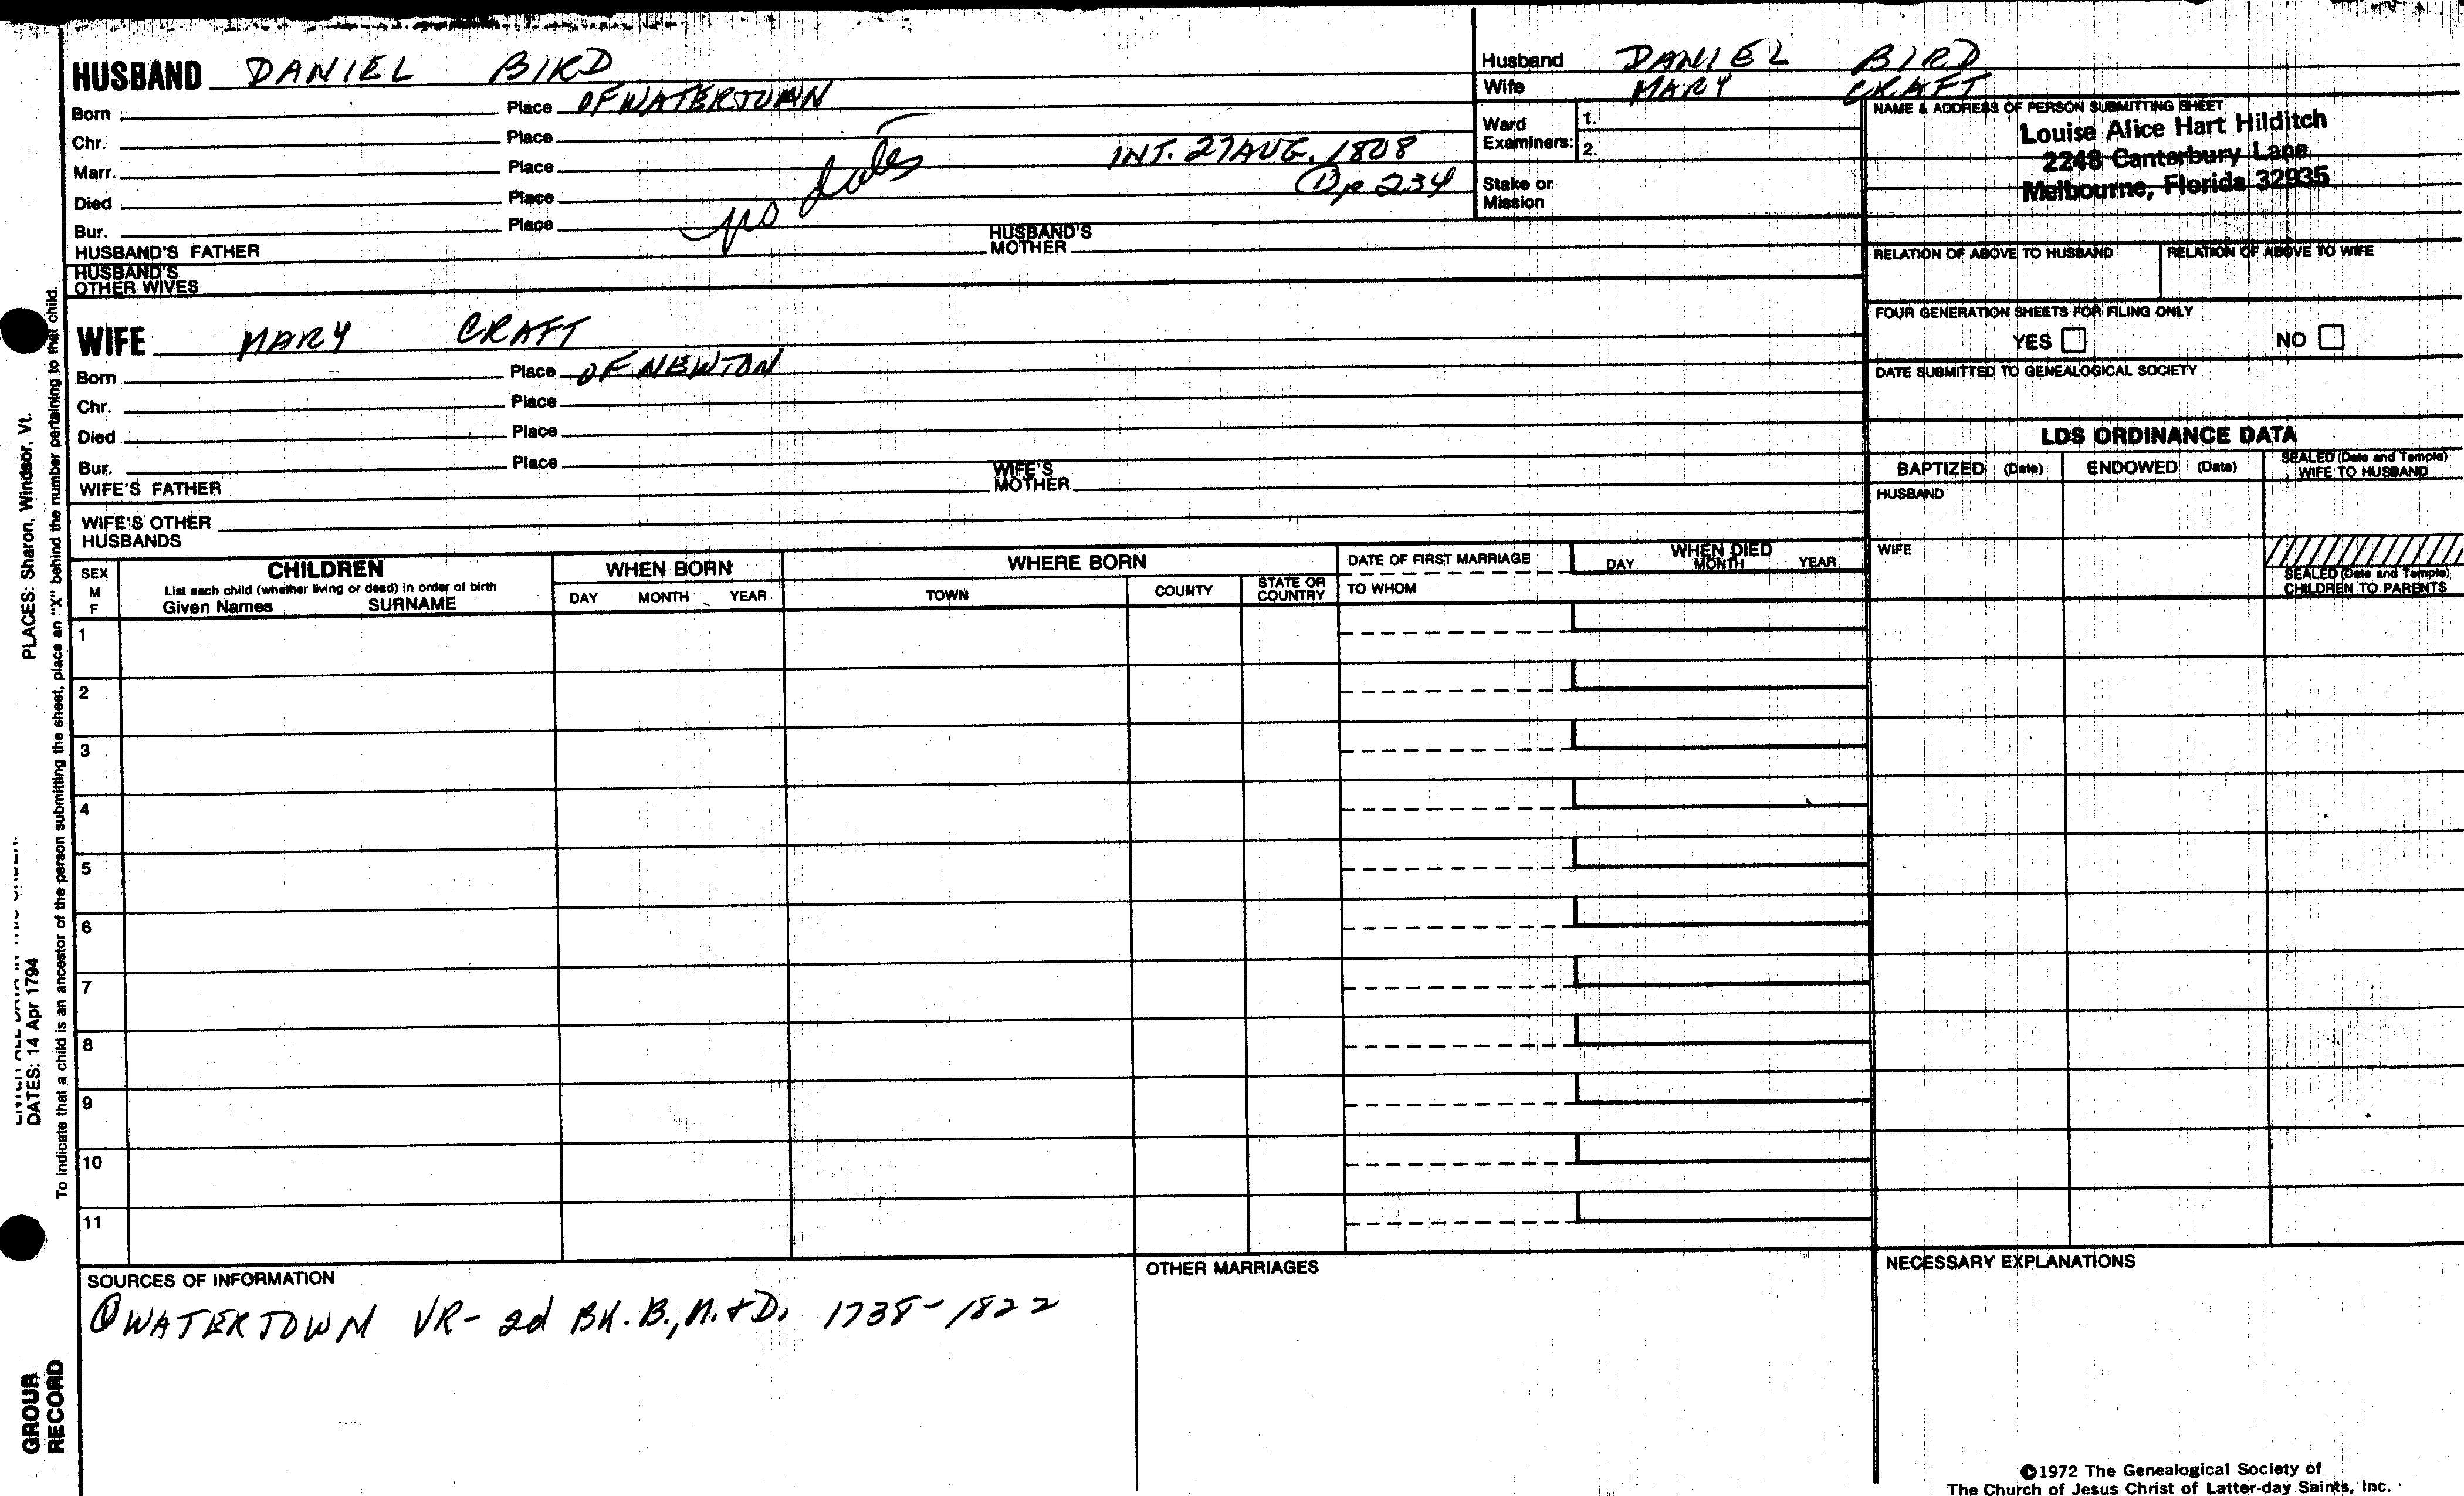 HUSBAND DANIEL BIRD
Born Place OF WATERTOWN
Chr. Place
Marr. Place INT. 27 AUG. 1808
Died Place ① p 234
Bur. Place no dates
HUSBAND'S FATHER HUSBAND'S MOTHER
HUSBAND'S OTHER WIVES
WIFE MARY CRAFT
Born Place OF NEWTON
Chr. Place
Died Place
Bur. Place
WIFE'S FATHER WIFE'S MOTHER
WIFE'S OTHER HUSBANDS
Husband DANIEL BIRD
Wife MARY CRAFT
Ward Examiners: 1.
2.
Stake or Mission
NAME & ADDRESS OF PERSON SUBMITTING SHEET
Louise Alice Hart Hilditch
2248 Canterbury Lane
Melbourne, Florida 32935
RELATION OF ABOVE TO HUSBAND RELATION OF ABOVE TO WIFE
FOUR GENERATION SHEETS FOR FILING ONLY
YES NO
DATE SUBMITTED TO GENEALOGICAL SOCIETY
LDS ORDINANCE DATA
BAPTIZED (Date) ENDOWED (Date) SEALED (Date and Temple) WIFE TO HUSBAND
HUSBAND
WIFE
SEALED (Date and Temple) CHILDREN TO PARENTS
SEX M F
CHILDREN
List each child (whether living or dead) in order of birth
Given Names SURNAME
WHEN BORN
DAY MONTH YEAR
WHERE BORN
TOWN COUNTY STATE OR COUNTRY
DATE OF FIRST MARRIAGE
TO WHOM
WHEN DIED
DAY MONTH YEAR
1
2
3
4
5
6
7
8
9
10
11
SOURCES OF INFORMATION
① WATERTOWN VR- 2d BK. B., M. + D. 1738-1822
OTHER MARRIAGES
NECESSARY EXPLANATIONS
©1972 The Genealogical Society of
The Church of Jesus Christ of Latter-day Saints, Inc.
PLACES: Sharon, Windsor, Vt.
DATES: 14 Apr 1794
To indicate that a child is an ancestor of the person submitting the sheet, place an "X" behind the number pertaining to that child.
GROUP
RECORD